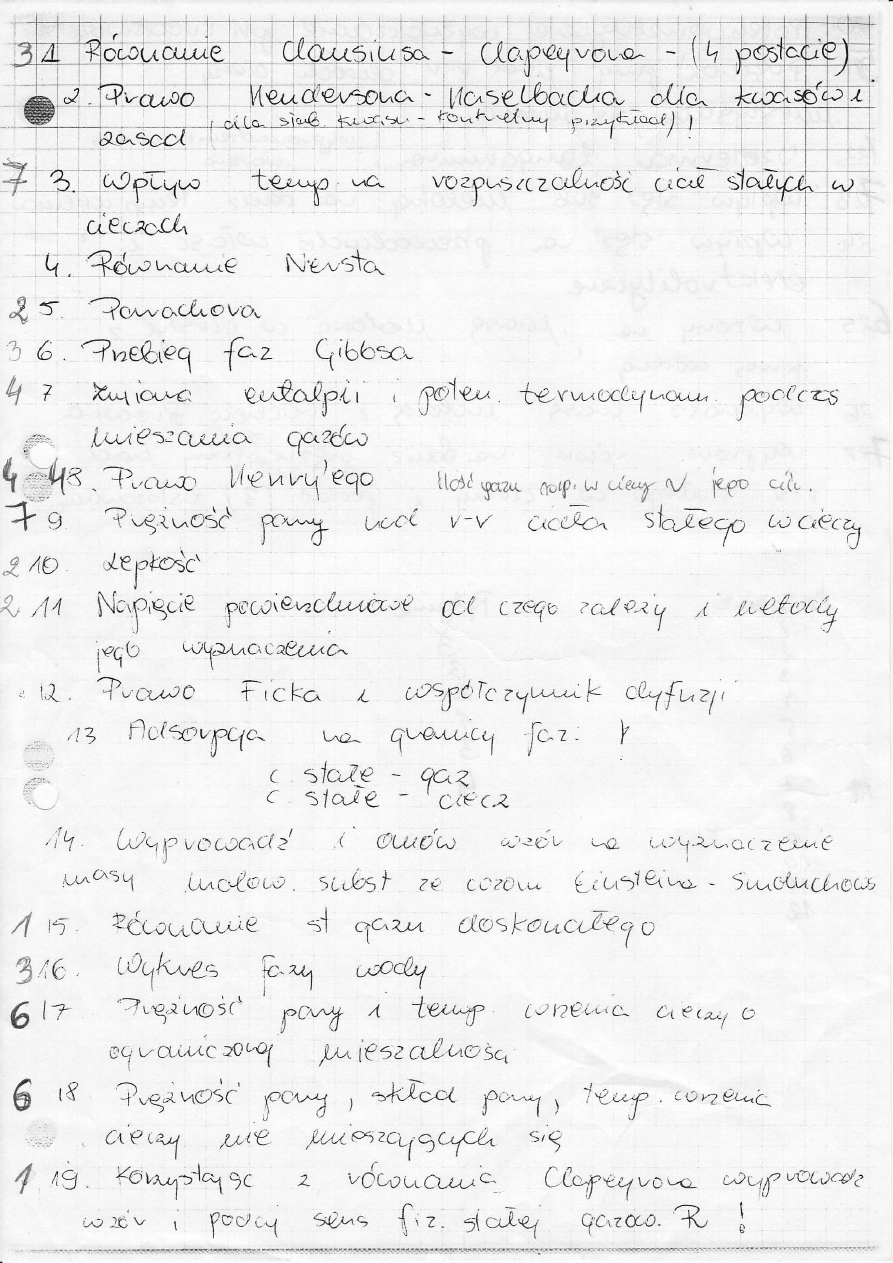 3 1 Równanie Clausiusa - Clapeyrona - (4 postacie)
2. Prawo Hendersona - Haselbacha dla kwasów i
zasad (dla słab. kwasu - konkretny przykład)!
7 3. Wpływ temp. na rozpuszczalność ciał stałych w
cieczach
4. Równanie Nersta
2 5. Parachora
3 6. Przebieg faz Gibbsa
4 7 Zmiana entalpii i poten. termodynam. podczas
mieszania gazów
4 8. Prawo Henry'ego Ilość gazu rozp. w cieczy N jego ciśn.
7 9. Prężność pary nad r-r ciała stałego w cieczy
2 10. Lepkość
2 11 Napięcie powierzchniowe od czego zależy i metody
jego wyznaczenia
12. Prawo Ficka i współczynnik dyfuzji
13 Adsorpcja na granicy faz: !
c. stałe - gaz
c. stałe - ciecz
14. Wyprowadź i omów wzór na wyznaczenie
masy molow. subst ze wzoru Einsteina - Smoluchows
1 15. Równanie st gazu doskonałego
3 16. Wykres fazy wody
6 17 Prężność pary i temp. wrzenia cieczy o
ograniczonej mieszalności
6 18 Prężność pary, skład pary, temp. wrzenia
cieczy nie mieszających się
1 19. Korzystając z równania Clapeyrona wyprowadź
wzór i podaj sens fiz. stałej gazow. R !